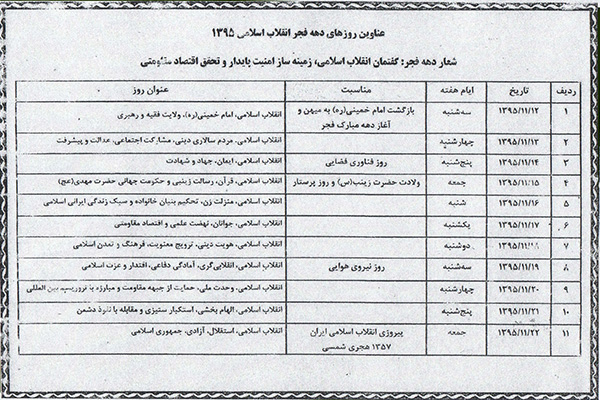 عناوین روزهای دهه فجر انقلاب اسلامی ۱۳۹۵
شعار دهه فجر: گفتمان انقلاب اسلامی، زمینه ساز امنیت پایدار و تحقق اقتصاد مقاومتی
ردیف تاریخ ایام هفته مناسبت عنوان روز
۱ ۱۳۹۵/۱۱/۱۲ سه‌شنبه بازگشت امام خمینی(ره) به میهن و انقلاب اسلامی، امام خمینی(ره)، ولایت فقیه و رهبری
آغاز دهه مبارک فجر
۲ ۱۳۹۵/۱۱/۱۳ چهارشنبه انقلاب اسلامی، مردم سالاری دینی، مشارکت اجتماعی، عدالت و پیشرفت
۳ ۱۳۹۵/۱۱/۱۴ پنج‌شنبه روز فناوری فضایی انقلاب اسلامی، ایمان، جهاد و شهادت
۴ ۱۳۹۵/۱۱/۱۵ جمعه ولادت حضرت زینب(س) و روز پرستار انقلاب اسلامی، قرآن، رسالت زینبی و حکومت جهانی حضرت مهدی(عج)
۵ ۱۳۹۵/۱۱/۱۶ شنبه انقلاب اسلامی، منزلت زن، تحکیم بنیان خانواده و سبک زندگی ایرانی اسلامی
۶ ۱۳۹۵/۱۱/۱۷ یکشنبه انقلاب اسلامی، جوانان، نهضت علمی و اقتصاد مقاومتی
۷ ۱۳۹۵/۱۱/۱۸ دوشنبه انقلاب اسلامی، هویت دینی، ترویج معنویت، فرهنگ و تمدن اسلامی
۸ ۱۳۹۵/۱۱/۱۹ سه‌شنبه روز نیروی هوایی انقلاب اسلامی، انقلابی‌گری، آمادگی دفاعی، اقتدار و عزت اسلامی
۹ ۱۳۹۵/۱۱/۲۰ چهارشنبه انقلاب اسلامی، وحدت ملی، حمایت از جبهه مقاومت و مبارزه با تروریسم بین المللی
۱۰ ۱۳۹۵/۱۱/۲۱ پنج‌شنبه انقلاب اسلامی، الهام بخشی، استکبار ستیزی و مقابله با نفوذ دشمن
۱۱ ۱۳۹۵/۱۱/۲۲ جمعه پیروزی انقلاب اسلامی ایران انقلاب اسلامی، استقلال، آزادی، جمهوری اسلامی
۱۳۵۷ هجری شمسی